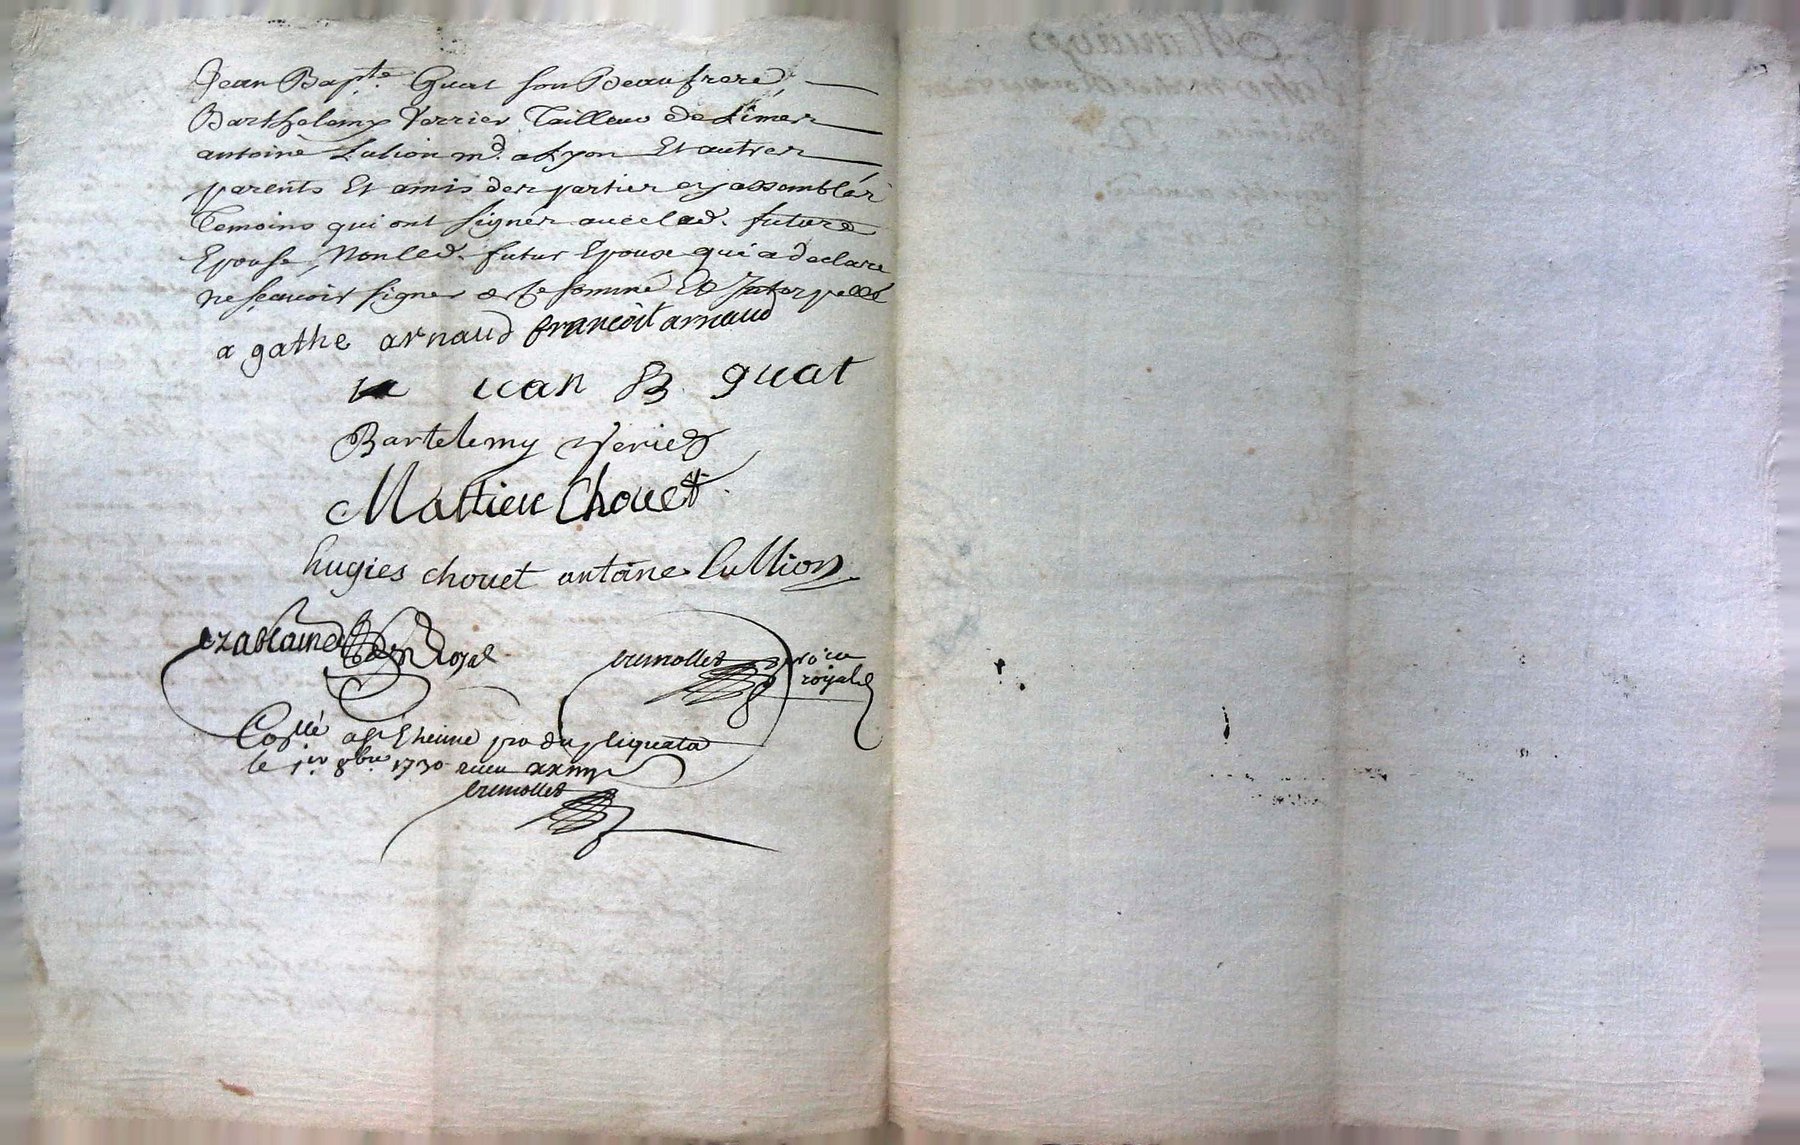 Jean Bap.te Guat son Beaufrere,
Barthelemy Verrier Tailleur de Limes
antoine Lulion md. a Lyon Et autres
parents Et amis des parties en assemblés
Temoins qui ont signés avec lad. future
Epouse, Non led. futur Epoux qui a declaré
ne sçavoir signer de ce sommé Et Interpellé
agathe arnaud francoit arnaud
jean B. guat
Bartelemy Verier
Mattieu Chouet
hugies chouet antoine lullion
Royal
brunollet
royal
Col.lé a St Etheinne pro dupliquata
le 1.er 8bre 1730 receu
brunollet